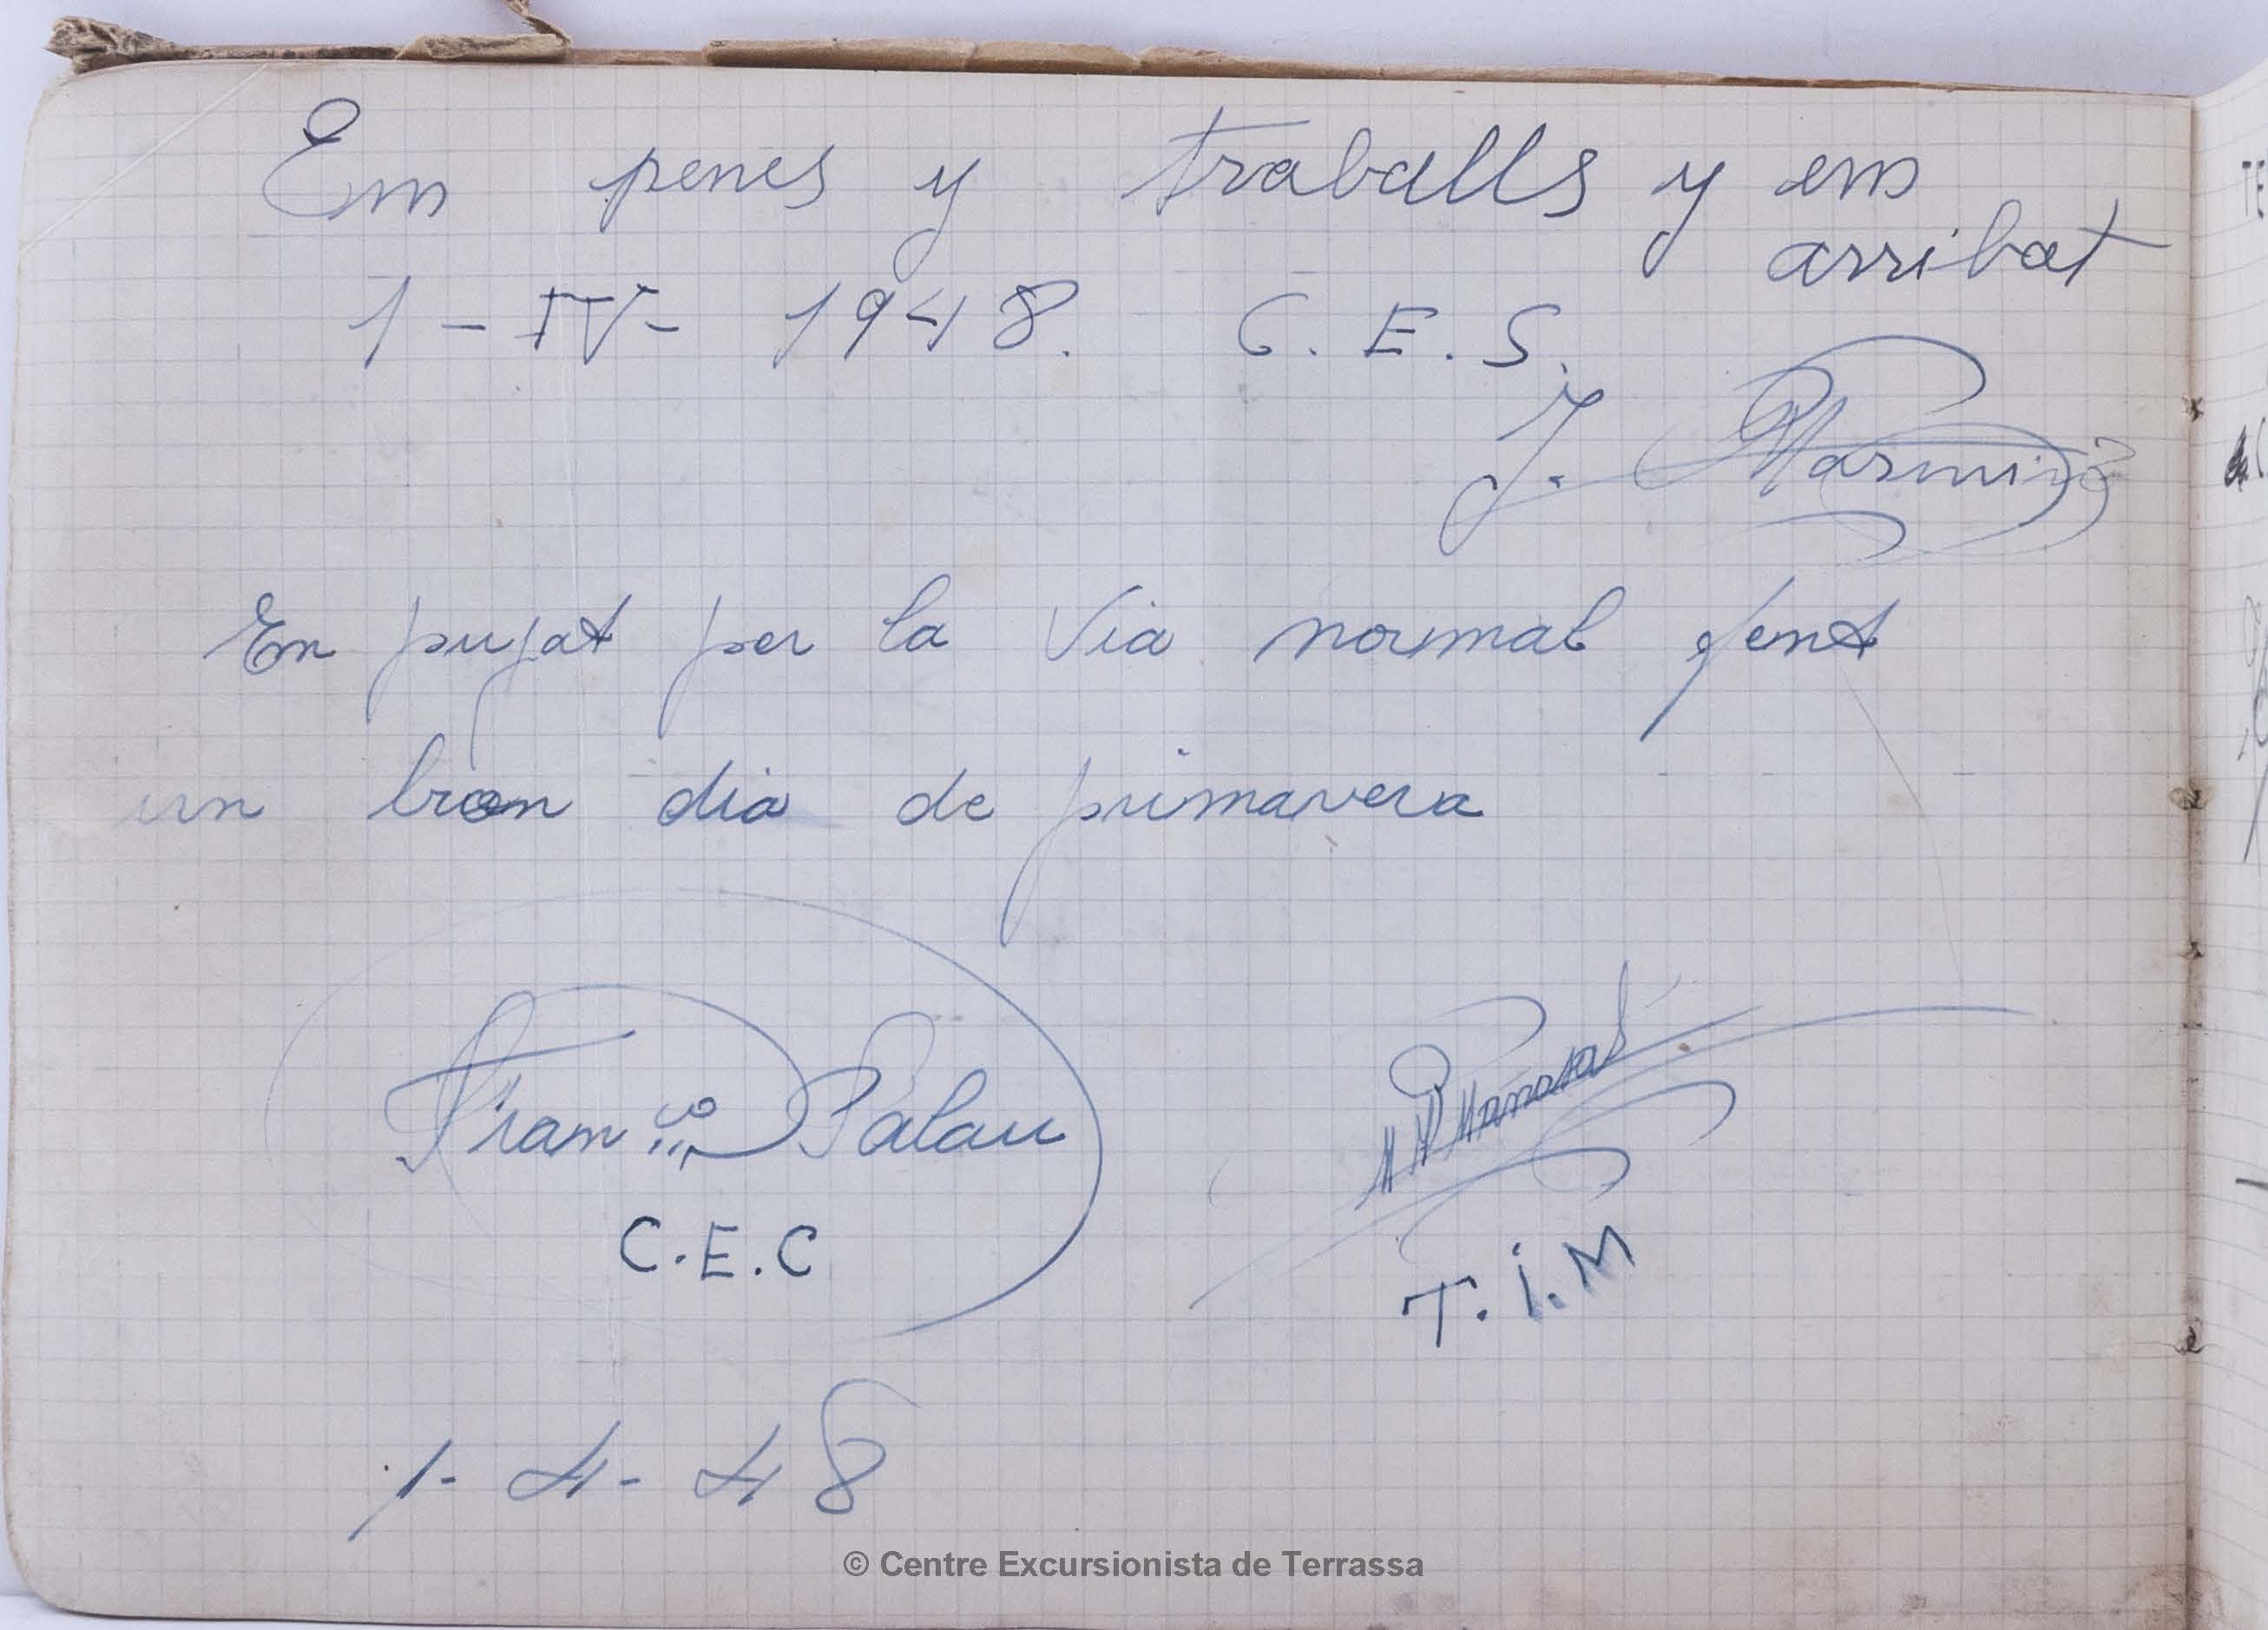 Em penes y traballs y em
arribat
1-IV-1948. C.E.S.
J.
En pujat per la Via normal fent
un bon dia de primavera
Palau
C.E.C
T.i.M
1-4-48
© Centre Excursionista de Terrassa